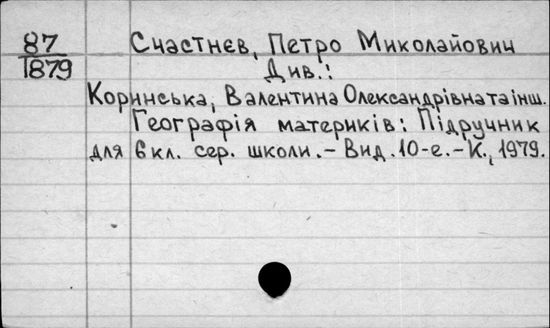 87 Счастнєв, Петро Миколайович
1879 Див.:
Коринська, Валентина Олександрівна та інш.
Географія материків: Підручник
для 6 кл. сер. школи.-Вид. 10-е.-К., 1979.